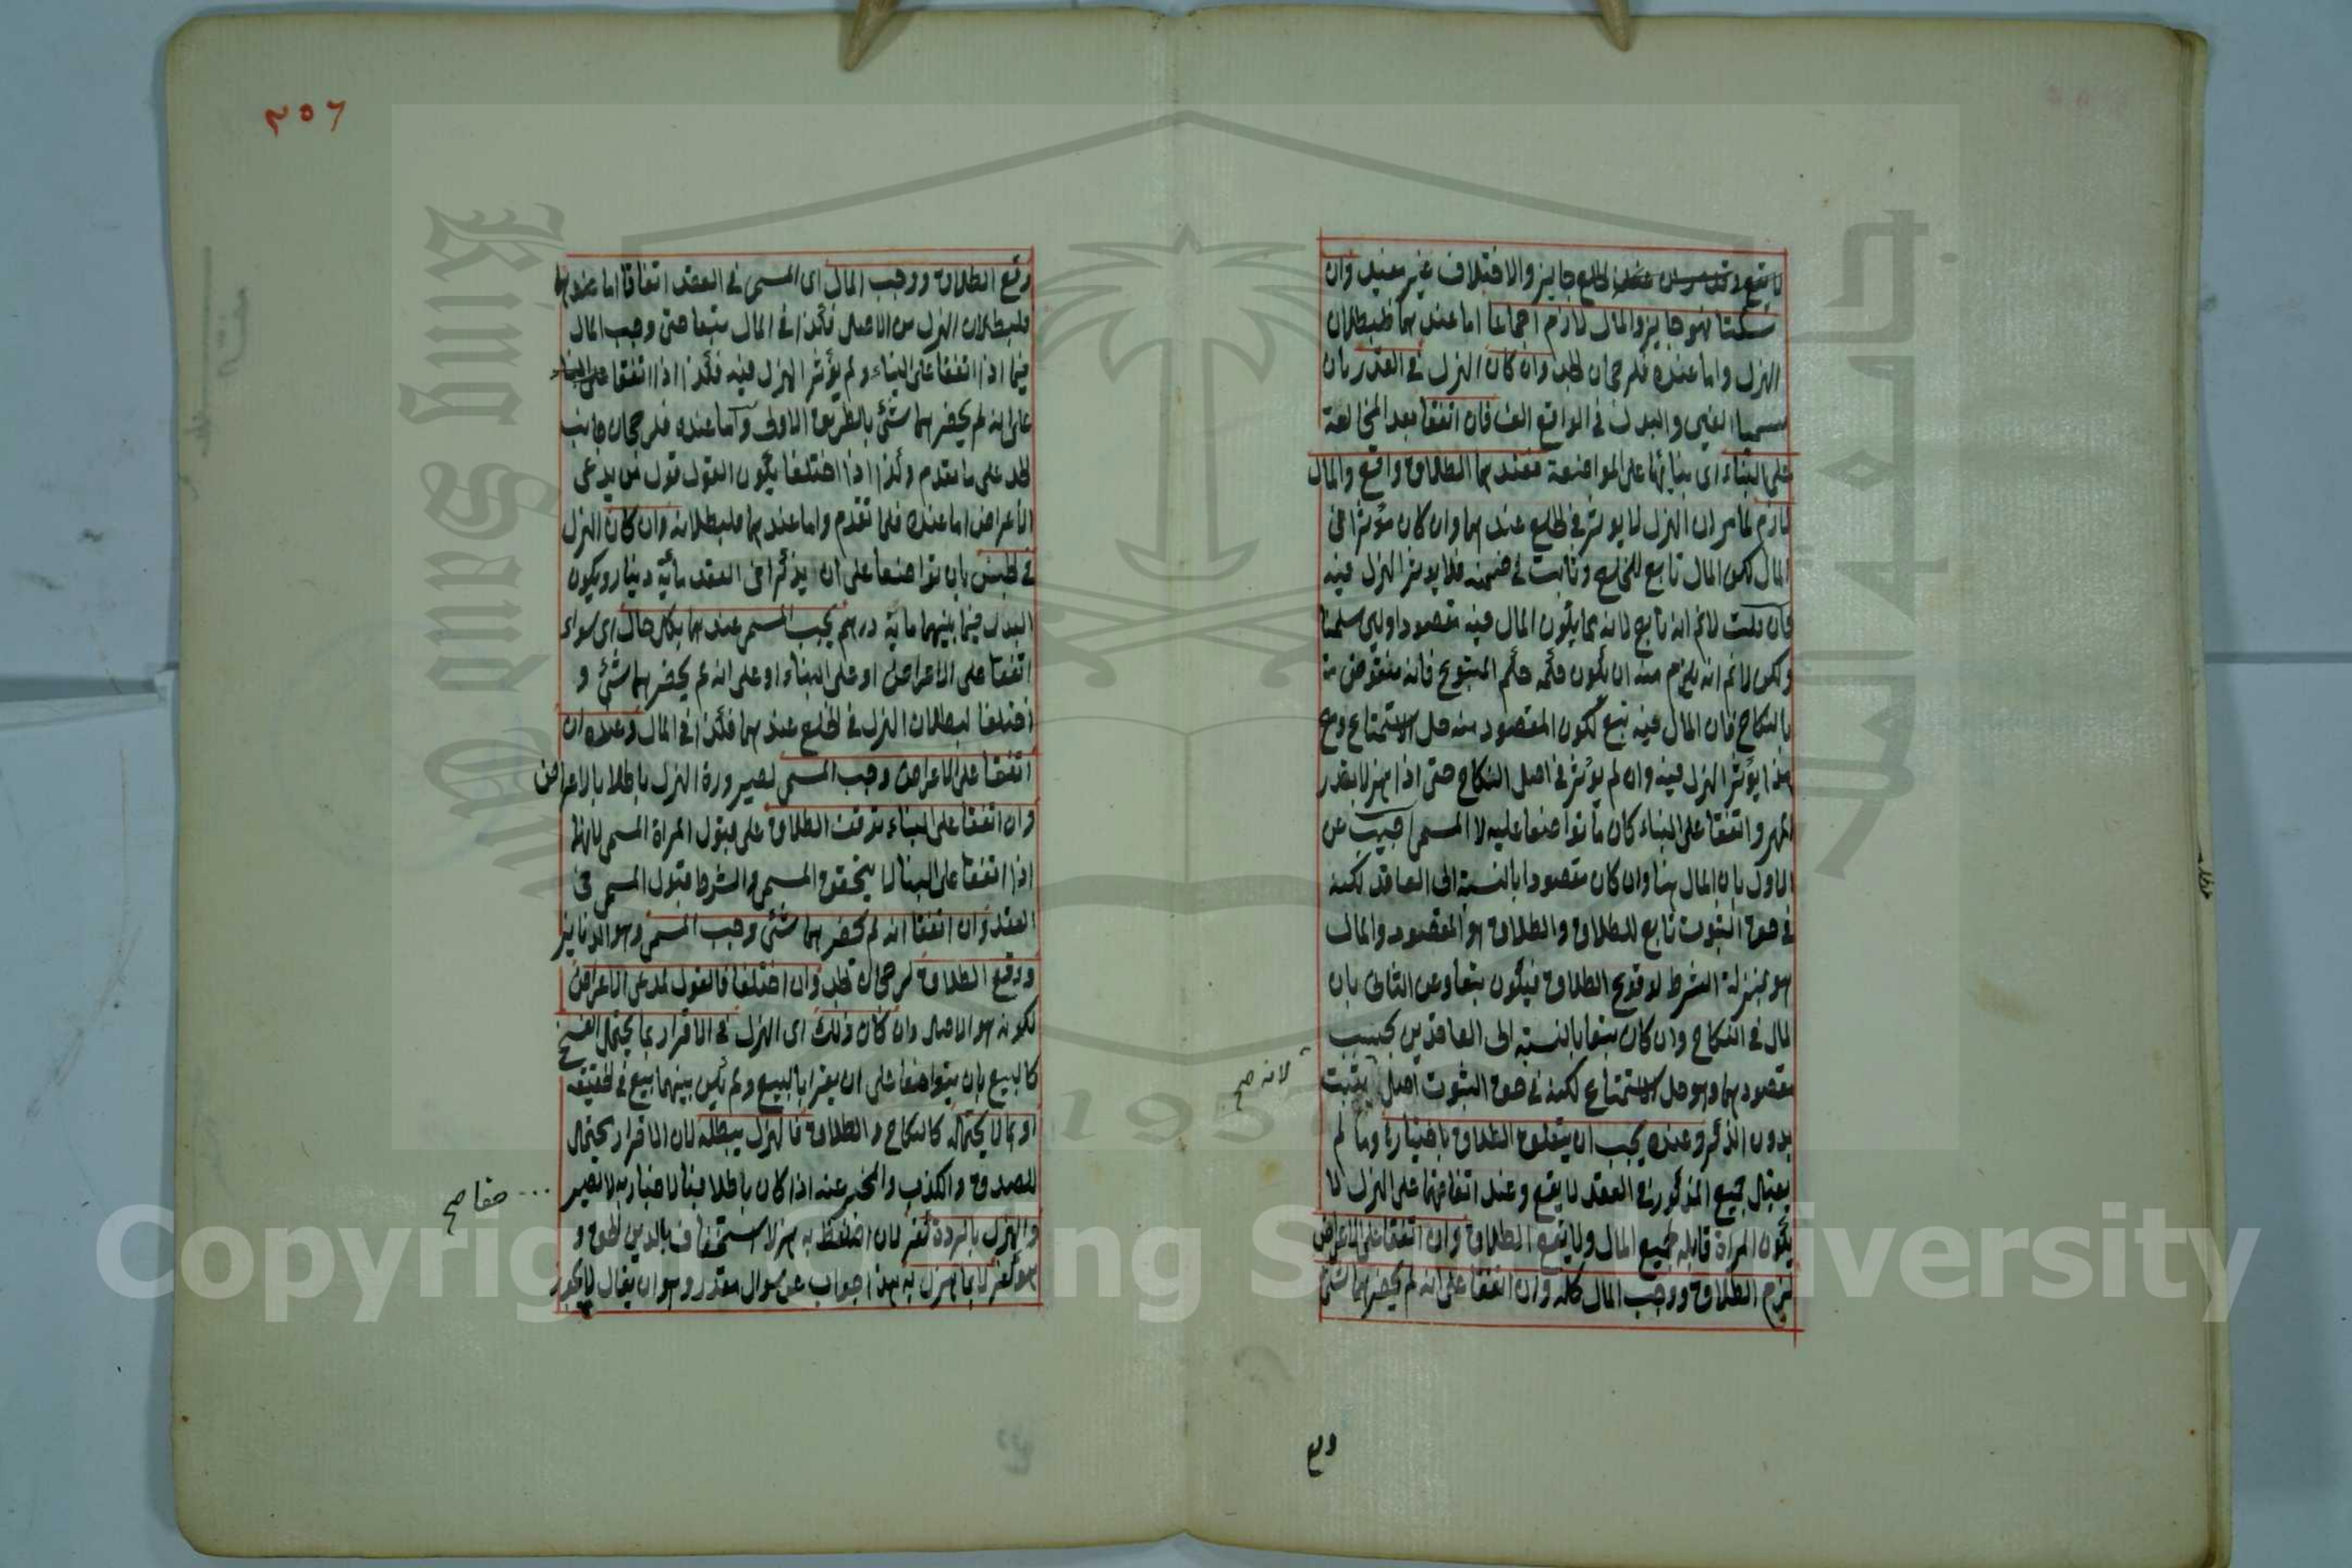 لا يقع الخلع جايز والاختلاف غير مفيد وان
سكتا فهو جايز والمال لازم اجماعا اما عندهما فلبطلان
الهزل واما عنده فلرجحان الجد وان كان الهزل في القدر بان
سميا الفين والبدل في الواقع الف فان اتفقا بعد المخالعة
على البناء اى بنائهما على المواضعة فعندهما الطلاق واقع والمال
لازم لما مر ان الهزل لا يوثر في الخلع عندهما وان كان مؤثرا في
المال لكن المال تابع للخلع وثابت في ضمنه فلا يوثر الهزل فيه
فان قلت لا نم انه تابع لانه مما يكون المال فيه مقصودا ولئن سلمنا
ولكن لا نم انه يلزم منه ان يكون حكمه حكم المتبوع فانه منقوض
بالنكاح فان المال فيه تبع لكون المقصود منه حل الاستمتاع ومع
هذا يؤثر الهزل فيه وان لم يؤثر في اصل النكاح حتى اذا هزلا بقدر
المهر واتفقا على البناء كان ما تواضعا عليه لا المسمى اجيب عن
الاول بان المال هنا وان كان مقصودا بالنسبة الى العاقد لكنه
في حق الثبوت تابع للطلاق والطلاق هو المقصود والمال
هو بمنزلة الشرط لوقوع الطلاق فيكون تبعا وعن الثانى بان
المال في النكاح وان كان تبعا بالنسبة الى العاقدين بحسب
مقصودهما وهو حل الاستمتاع لكنه في حق الثبوت اصل يثبت
لانه صح
بدون الذكر وعنده يجب ان يتعلق الطلاق باختيارها وما لم
يقبل جميع المذكور في العقد لا يقع وعند اتفاقهما على الهزل لا
يكون المراة قابلة لجميع المال ولا يقع الطلاق وان اتفقا على الاعراض
لزم الطلاق ووجب المال كله وان اتفقا على انه لم يحضرهما شئ
وقع
٣٥٦
وقع الطلاق ووجب المال اى المسمى في العقد اتفاقا اما عندهما
فلبطلان الهزل من الاصل فكذا في المال تبعا حتى وجب المال
فيما اذا اتفقا على البناء ولم يؤثر الهزل فيه فكذا اذا اتفقا
على انه لم يحضرهما شئ بالطريق الاولى واما عنده فلرجحان جانب
الجد على ما تقدم وكذا اذا اختلفا يكون القول قول من يدعى
الاعراض اما عنده فلما تقدم واما عندهما فلبطلانه وان كان الهزل
في الجنس بان تواضعا على ان يذكرا في العقد مائة دينار ويكون
البدل فيما بينهما ماية درهم يجب المسمى عندهما بكل حال اى سواء
اتفقا على الاعراض او على البناء او على انه لم يحضرهما شئ و
اختلفا لبطلان الهزل في الخلع عندهما فكذا في المال وعنده ان
اتفقا على الاعراض وجب المسمى لصيرورة الهزل باطلا بالاعراض
وان اتفقا على البناء توقف الطلاق على قبول المراة المسمى لانهما
اذا اتفقا على البنا لا يتحقق المسمى والشرط قبول المسمى في
العقد وان اتفقا انه لم يحضرهما شئ وجب المسمى وهو الدنانير
ووقع الطلاق لرجحان الجد وان اختلفا فالقول لمدعى الاعراض
لكونه هو الاصل وان كان ذلك اى الهزل في الاقرار بما يحتمل الفسخ
كالبيع بان يتواضعا على ان يقرا بالبيع ولم يكن بينهما بيع في الحقيقة
او بما لا يحتمله كالنكاح والطلاق فالهزل يبطله لان الاقرار يحتمل
للصدق والكذب والمخبر عنه اذا كان باطلا فبالاخبار به لا يصير
حقا صح
والهزل بالردة كفر لان التلفظ به هزلا استخفاف بالدين الحق و
هو كفر لا بما هزل به هذا جواب عن سوال مقدر وهو ان يقال لا يجوز